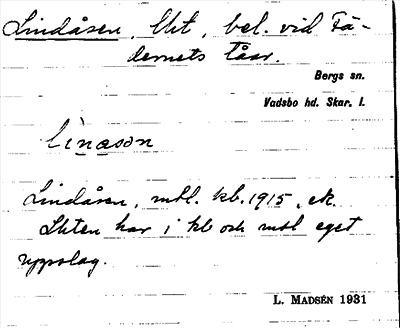 Lindåsen, lht, bel. vid Fä-
dernets tåar.
Bergs sn.
Vadsbo hd. Skar. l.
lìnasɔn
Lindåsen, mtl. kb. 1915, ek.
Lhten har i kb och mtl eget
uppslag.
L. MADSÉN 1931